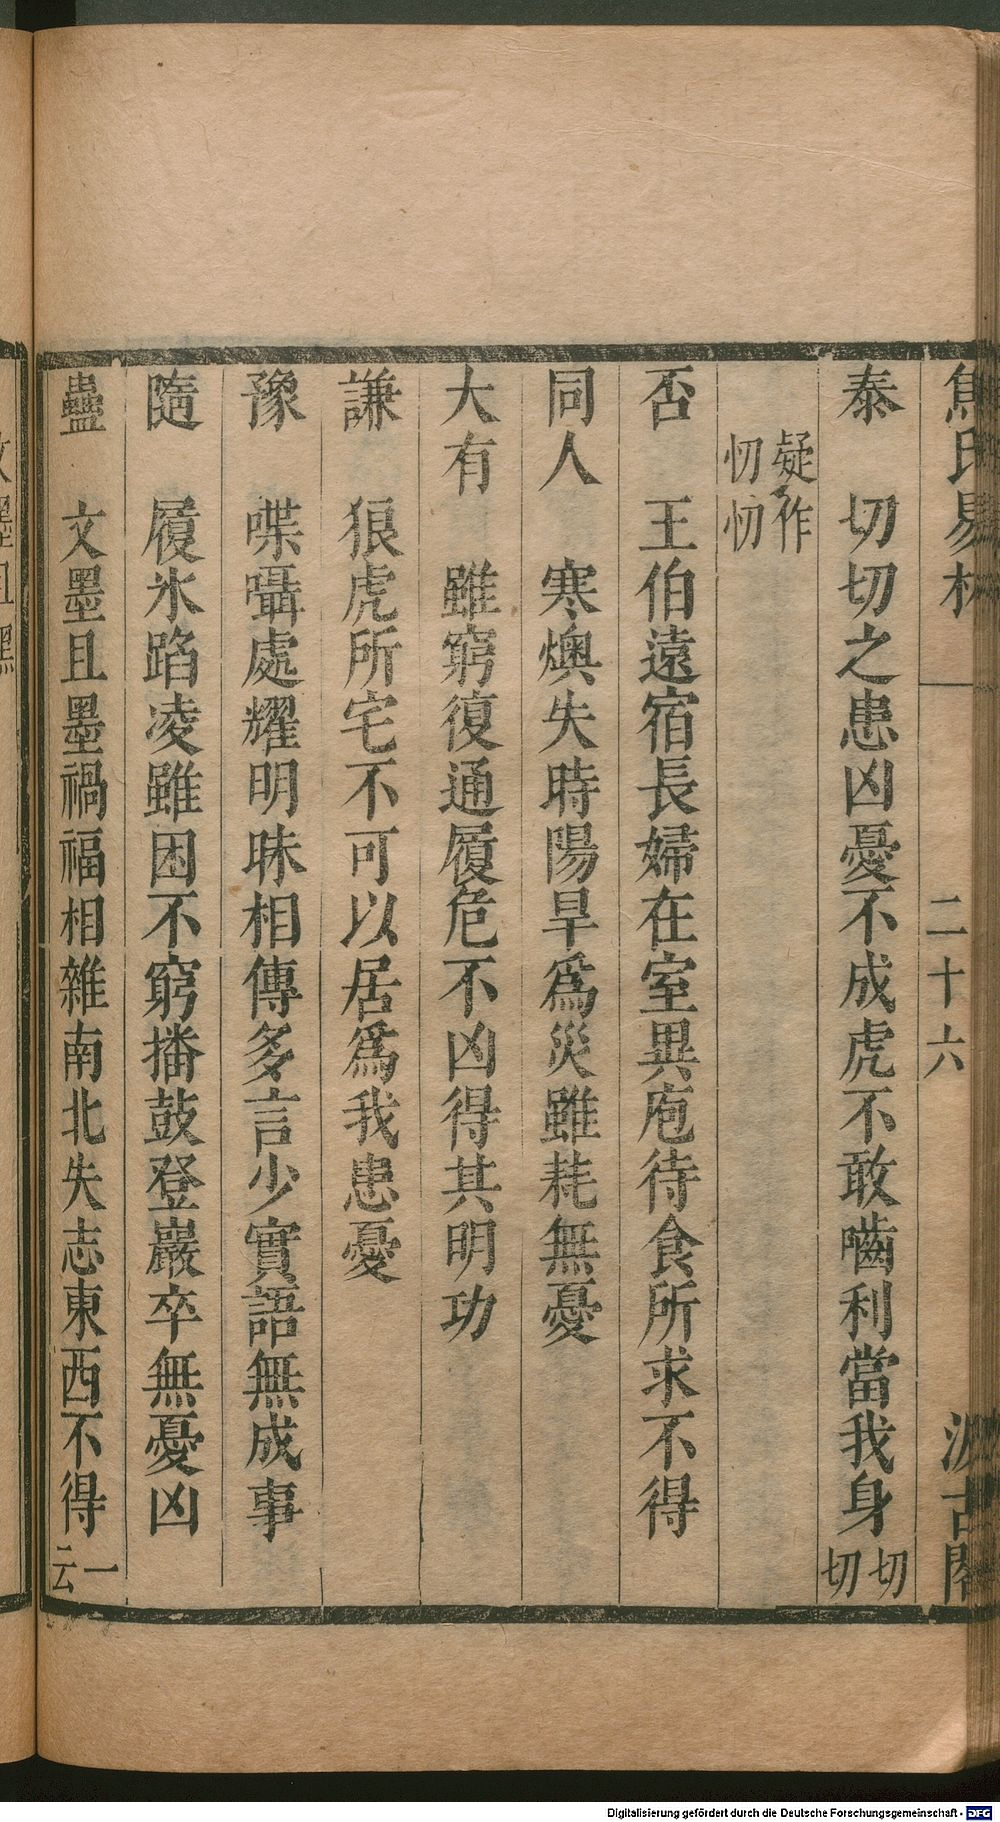 焦氏易林 二十六 汲古閣
泰 切切之患凶憂不成虎不敢嚙利當我身切切
疑作忉忉
否 王伯遠宿長婦在室異庖待食所求不得
同人 寒燠失時陽旱爲災雖耗無憂
大有 雖窮復通履危不凶得其明功
謙 狼虎所宅不可以居爲我患憂
豫 喋囁處耀明昧相傳多言少實語無成事
隨 履氷蹈凌雖困不窮播鼓登巖卒無憂凶
蠱 文墨且墨禍福相雜南北失志東西不得一云
Digitalisierung gefördert durch die Deutsche Forschungsgemeinschaft - DFG